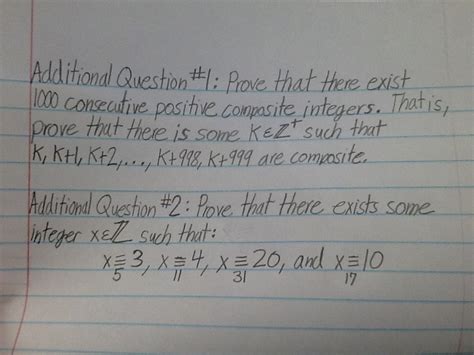 Additional Question #1: Prove that there exist
1000 consecutive positive composite integers. That is,
prove that there is some K∈ℤ⁺ such that
K, K+1, K+2, ..., K+998, K+999 are composite.
Additional Question #2: Prove that there exists some
integer x∈ℤ such that:
x ≡₅ 3, x ≡₁₁ 4, x ≡₃₁ 20, and x ≡₁₇ 10